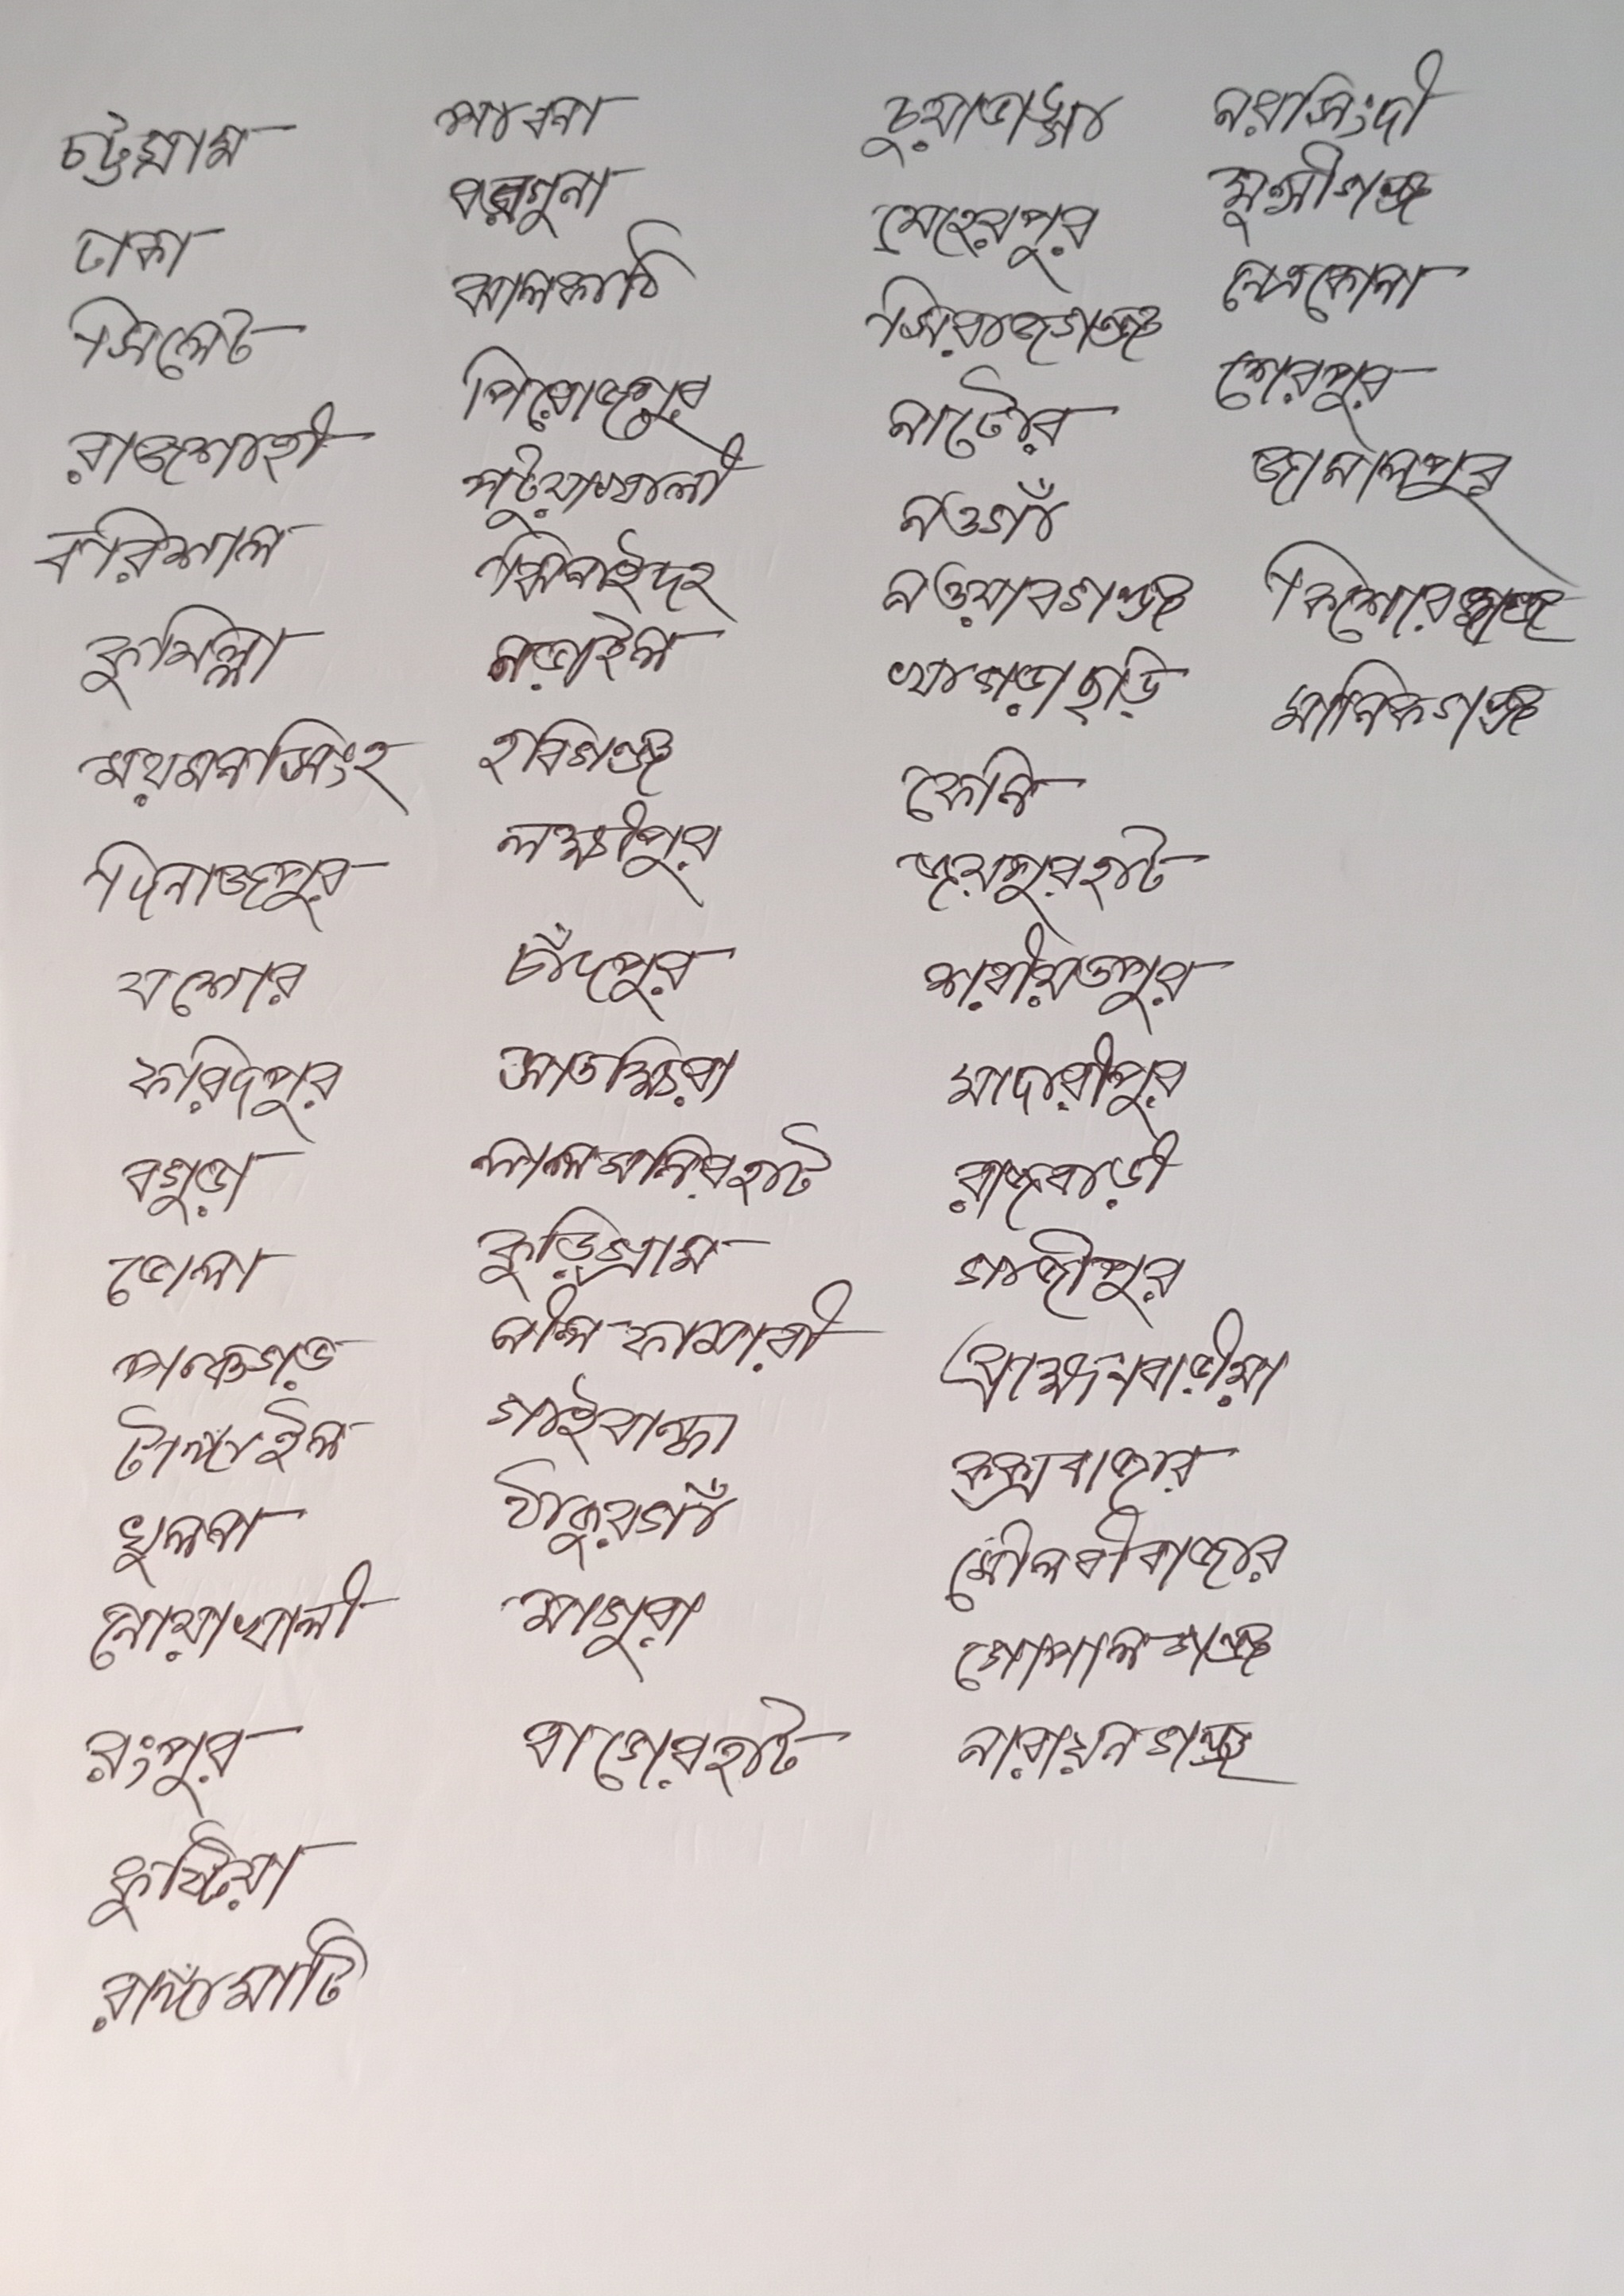 চট্টগ্রাম
ঢাকা
সিলেট
রাজশাহী
বরিশাল
কুমিল্লা
ময়মনসিংহ
দিনাজপুর
যশোর
ফরিদপুর
বগুড়া
ভোলা
পঞ্চগড়
টাঙ্গাইল
খুলনা
নোয়াখালী
রংপুর
কুষ্টিয়া
রাঙ্গামাটি
পাবনা
বরগুনা
ঝালকাঠি
পিরোজপুর
পটুয়াখালী
ঝিনাইদহ
নড়াইল
হবিগঞ্জ
লক্ষীপুর
চাঁদপুর
সাতক্ষিরা
লালমনিরহাট
কুড়িগ্রাম
নীলফামারী
গাইবান্ধা
ঠাকুরগাঁ
মাগুরা
বাগেরহাট
চুয়াডাঙ্গা
মেহেরপুর
সিরাজগঞ্জ
নাটোর
নওগাঁ
নওয়াবগঞ্জ
খাগড়াছড়ি
ফেনি
জয়পুরহাট
শরীয়তপুর
মাদারীপুর
রাজবাড়ী
গাজীপুর
ব্রাক্ষনবাড়ীয়া
কক্সবাজার
মৌলবীবাজার
গোপালগঞ্জ
নারায়নগঞ্জ
নরসিংদী
মুন্সীগঞ্জ
নেত্রকোনা
শেরপুর
জামালপুর
কিশোরগঞ্জ
মানিকগঞ্জ